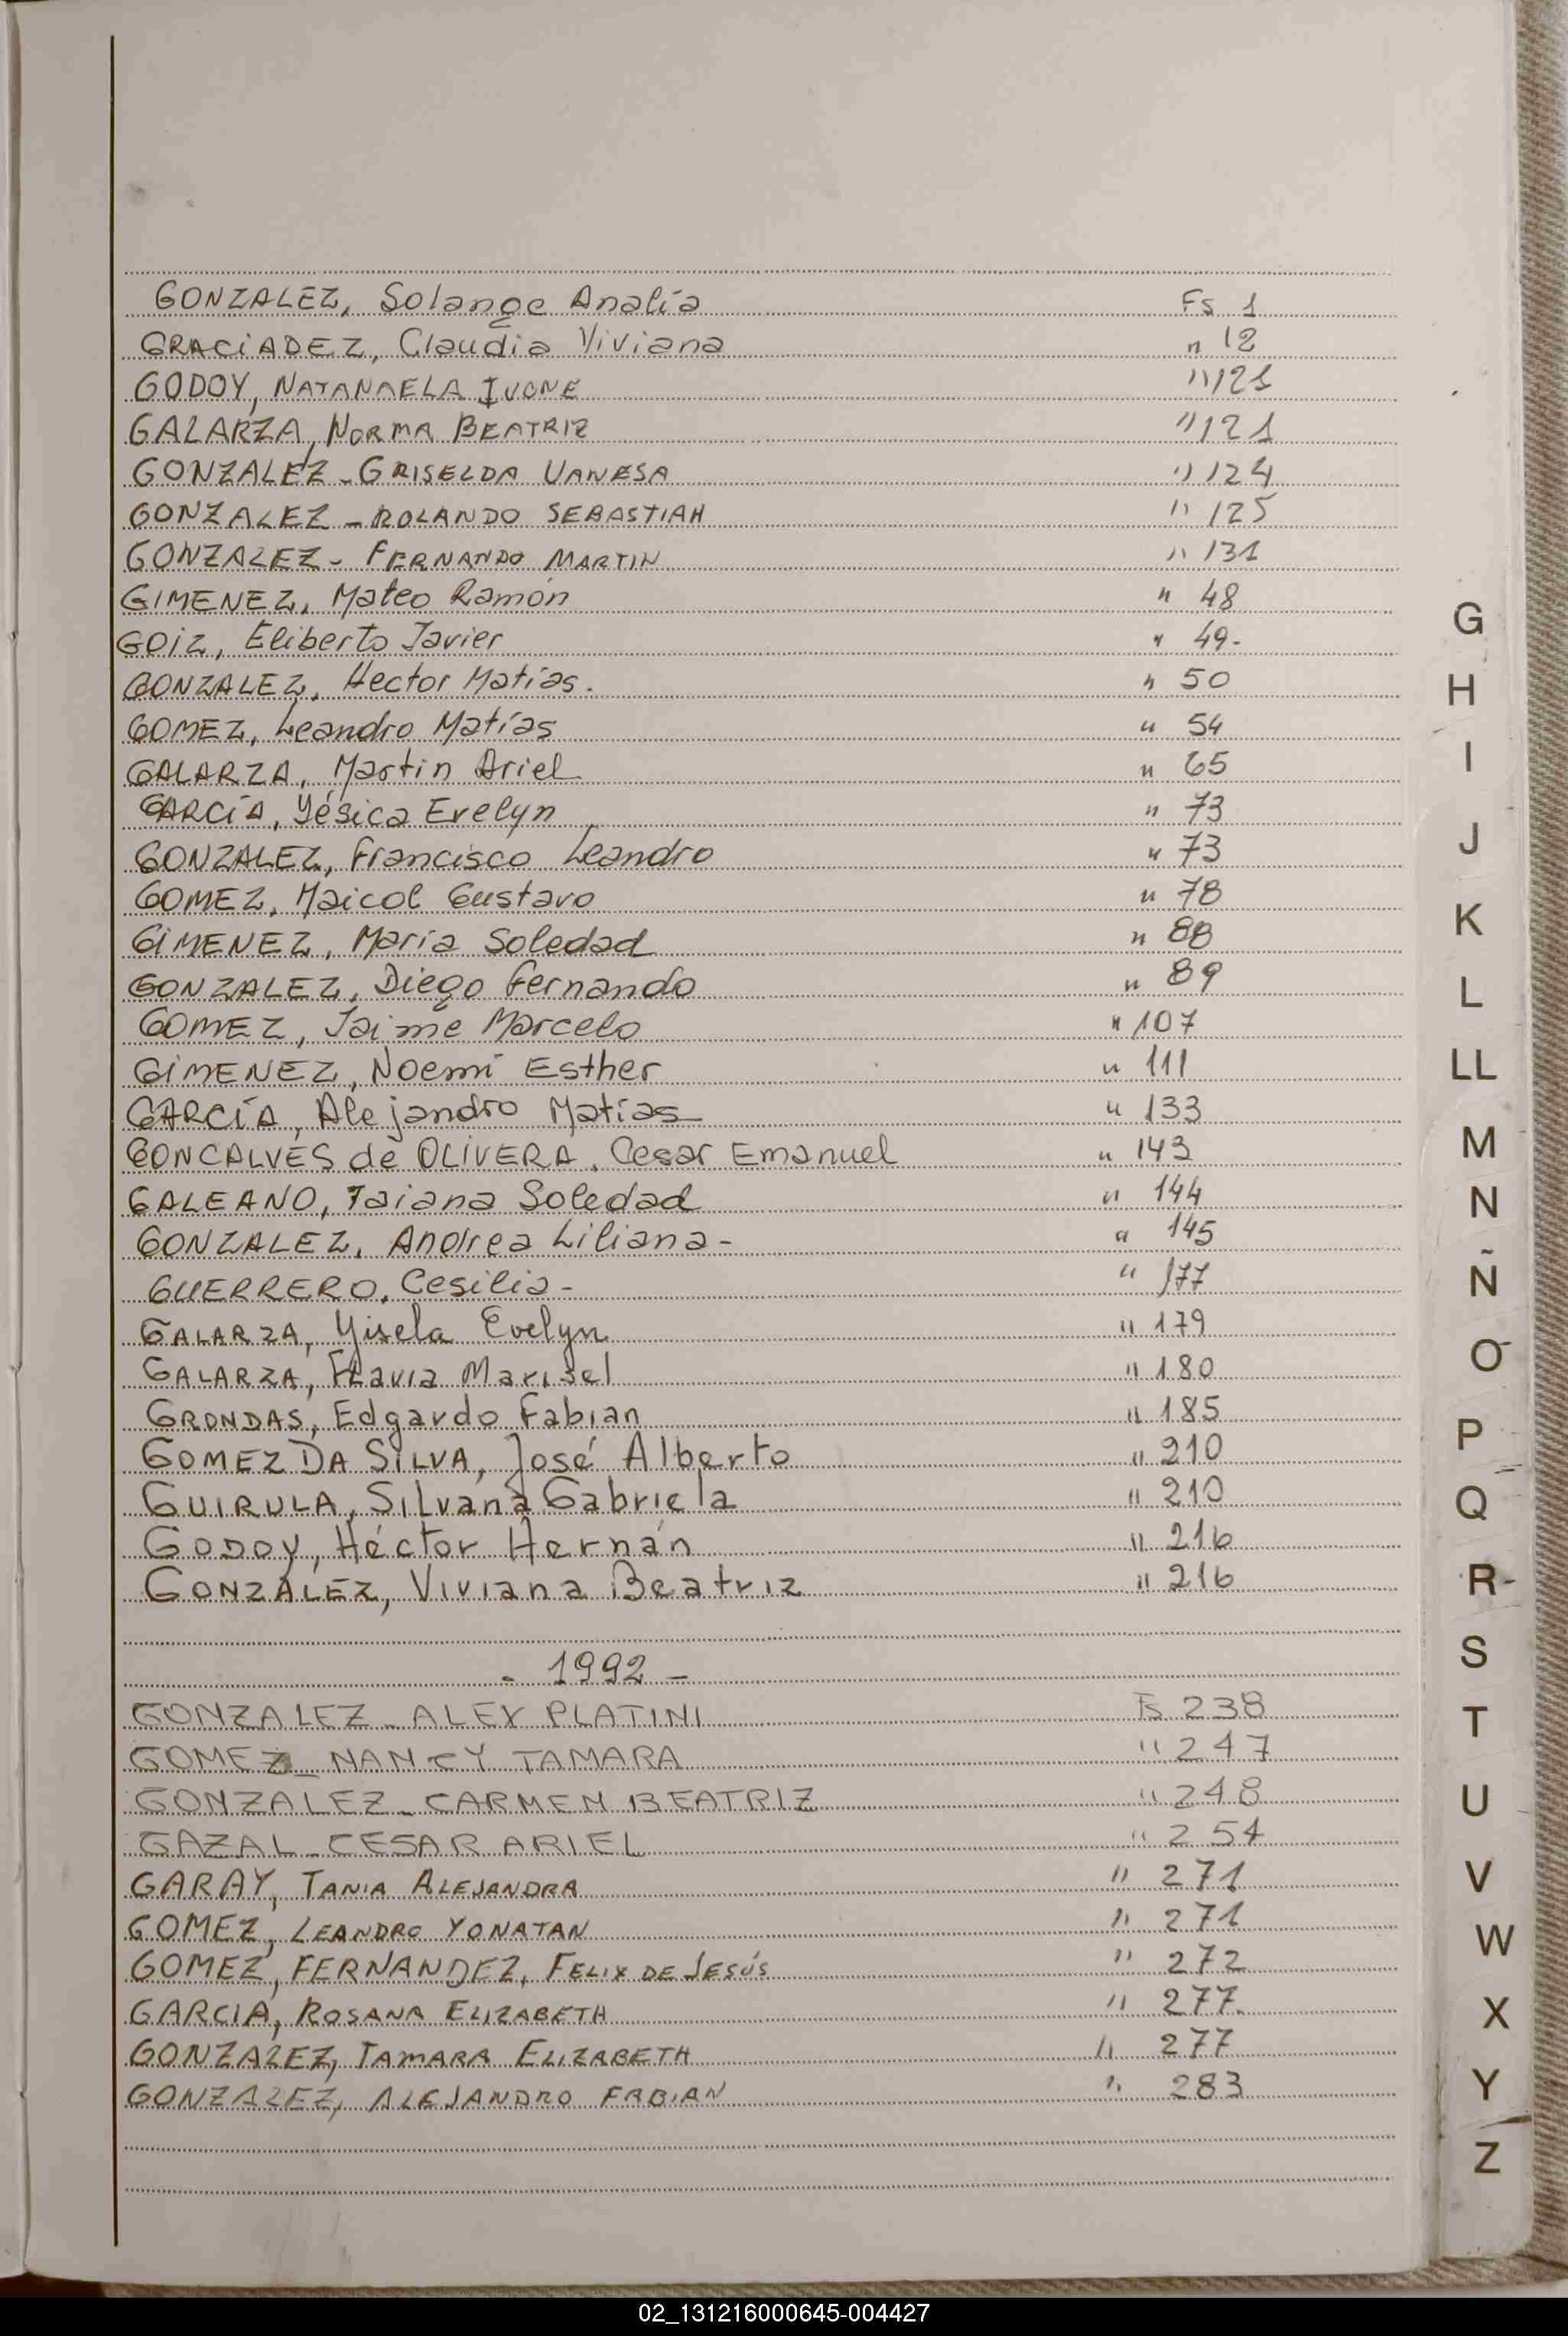 GONZALEZ, Solange Analía Fs 1
GRACIADEZ, Claudia Viviana " 12
GODOY, NATANAELA IVONE " 121
GALARZA, NORMA BEATRIZ " 121
GONZALEZ - GRISELDA VANESA " 124
GONZALEZ - ROLANDO SEBASTIAN " 125
GONZALEZ - FERNANDO MARTIN " 131
GIMENEZ, Mateo Ramón " 48
GOIZ, Eliberto Javier " 49-
GONZALEZ, Hector Matías. " 50
GOMEZ, Leandro Matías " 54
GALARZA, Martin Ariel " 65
GARCÍA, Yésica Evelyn " 73
GONZALEZ, Francisco Leandro " 73
GOMEZ, Maicol Gustavo " 78
GIMENEZ, Maria Soledad " 88
GONZALEZ, Diego Fernando " 89
GOMEZ, Jaime Marcelo " 107
GIMENEZ, Noemí Esther " 111
GARCÍA, Alejandro Matías " 133
GONCALVES de OLIVERA, Cesar Emanuel " 143
GALEANO, Taiana Soledad " 144
GONZALEZ, Andrea Liliana - " 145
GUERRERO, Cesilia - " 177
GALARZA, Yisela Evelyn " 179
GALARZA, Flavia Marisel " 180
GRONDAS, Edgardo Fabian " 185
GOMEZ DA SILVA, José Alberto " 210
GUIRULA, Silvana Gabriela " 210
GODOY, Héctor Hernán " 216
GONZÁLEZ, Viviana Beatriz " 216
- 1992 -
GONZALEZ - ALEX PLATINI Fs 238
GOMEZ - NANCY TAMARA " 247
GONZALEZ - CARMEN BEATRIZ " 248
GAZAL - CESAR ARIEL " 254
GARAY, TANIA ALEJANDRA " 271
GOMEZ, LEANDRO YONATAN " 271
GOMEZ, FERNANDEZ, FELIX DE JESÚS " 272
GARCIA, ROSANA ELIZABETH " 277
GONZALEZ, TAMARA ELIZABETH " 277
GONZALEZ, ALEJANDRO FABIAN " 283
G
H
I
J
K
L
LL
M
N
Ñ
O
P
Q
R
S
T
U
V
W
X
Y
Z
02_131216000645-004427